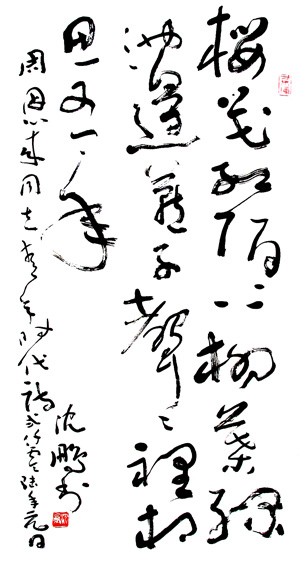 樱花红陌上柳葉绿
池邊燕子聲〻裡相
思又一年
周恩来同志青年时代诗
沈鹏书